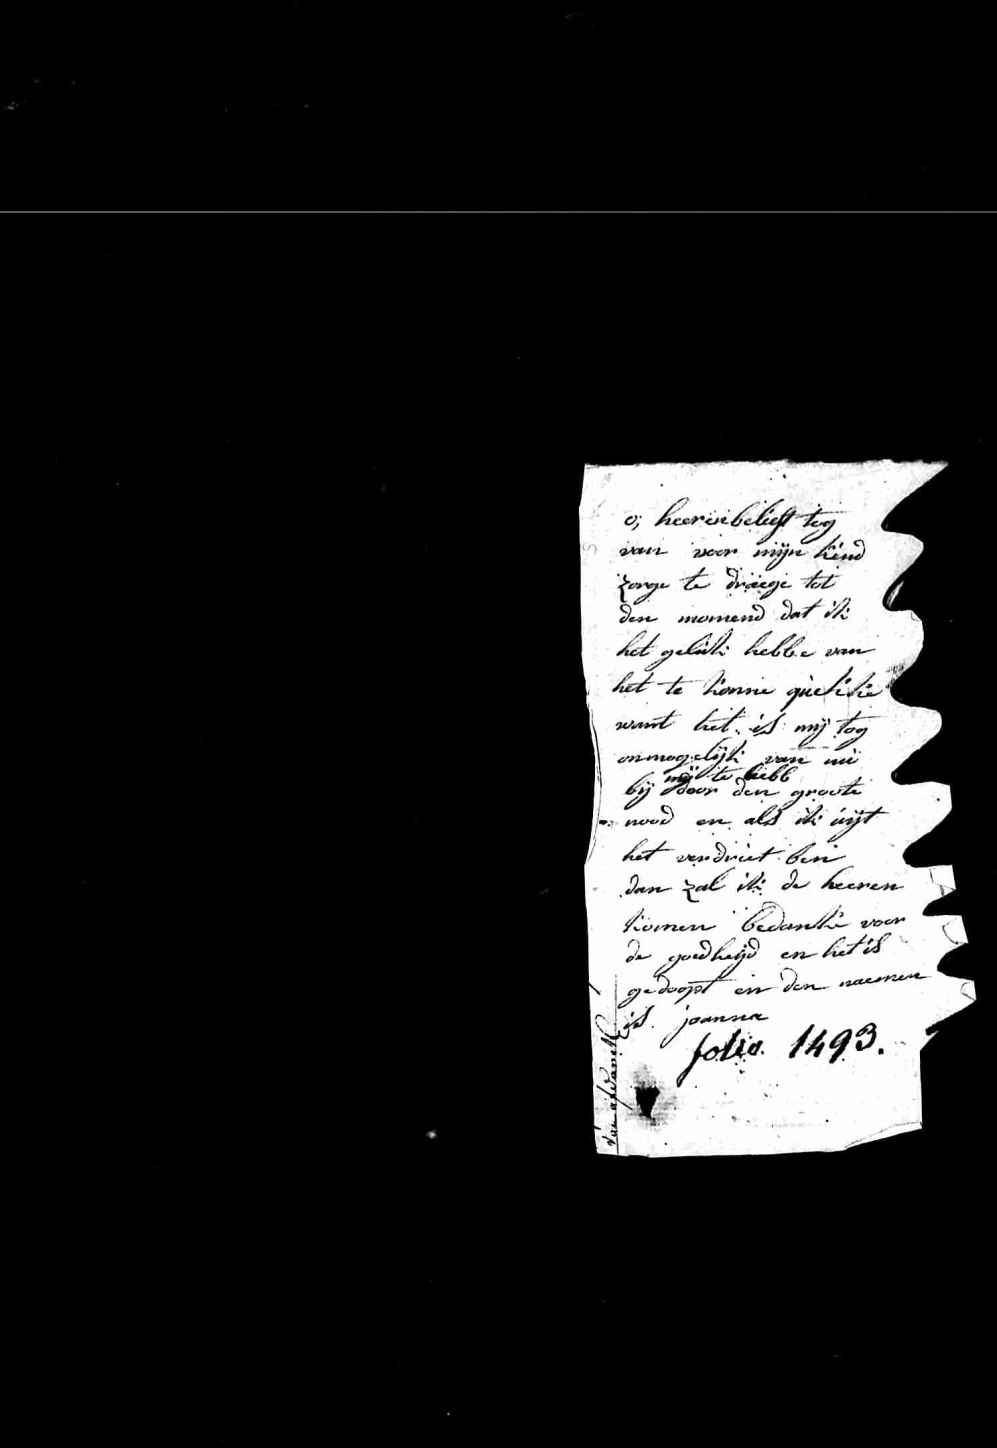 o, heeren belieft tog
van voor mijn kind
zorge te draege tot
den momend dat ik
het geluk hebbe van
het te konne
want het is mij tog
onmogelijk van nu
mij te hebb
bij door den groote
nood en als ik uijt
het verdriet ben
dan zal ik de heeren
komen bedanke voor
de goedheijd en het is
gedoopt en den naemen
is joanna
folio 1493.